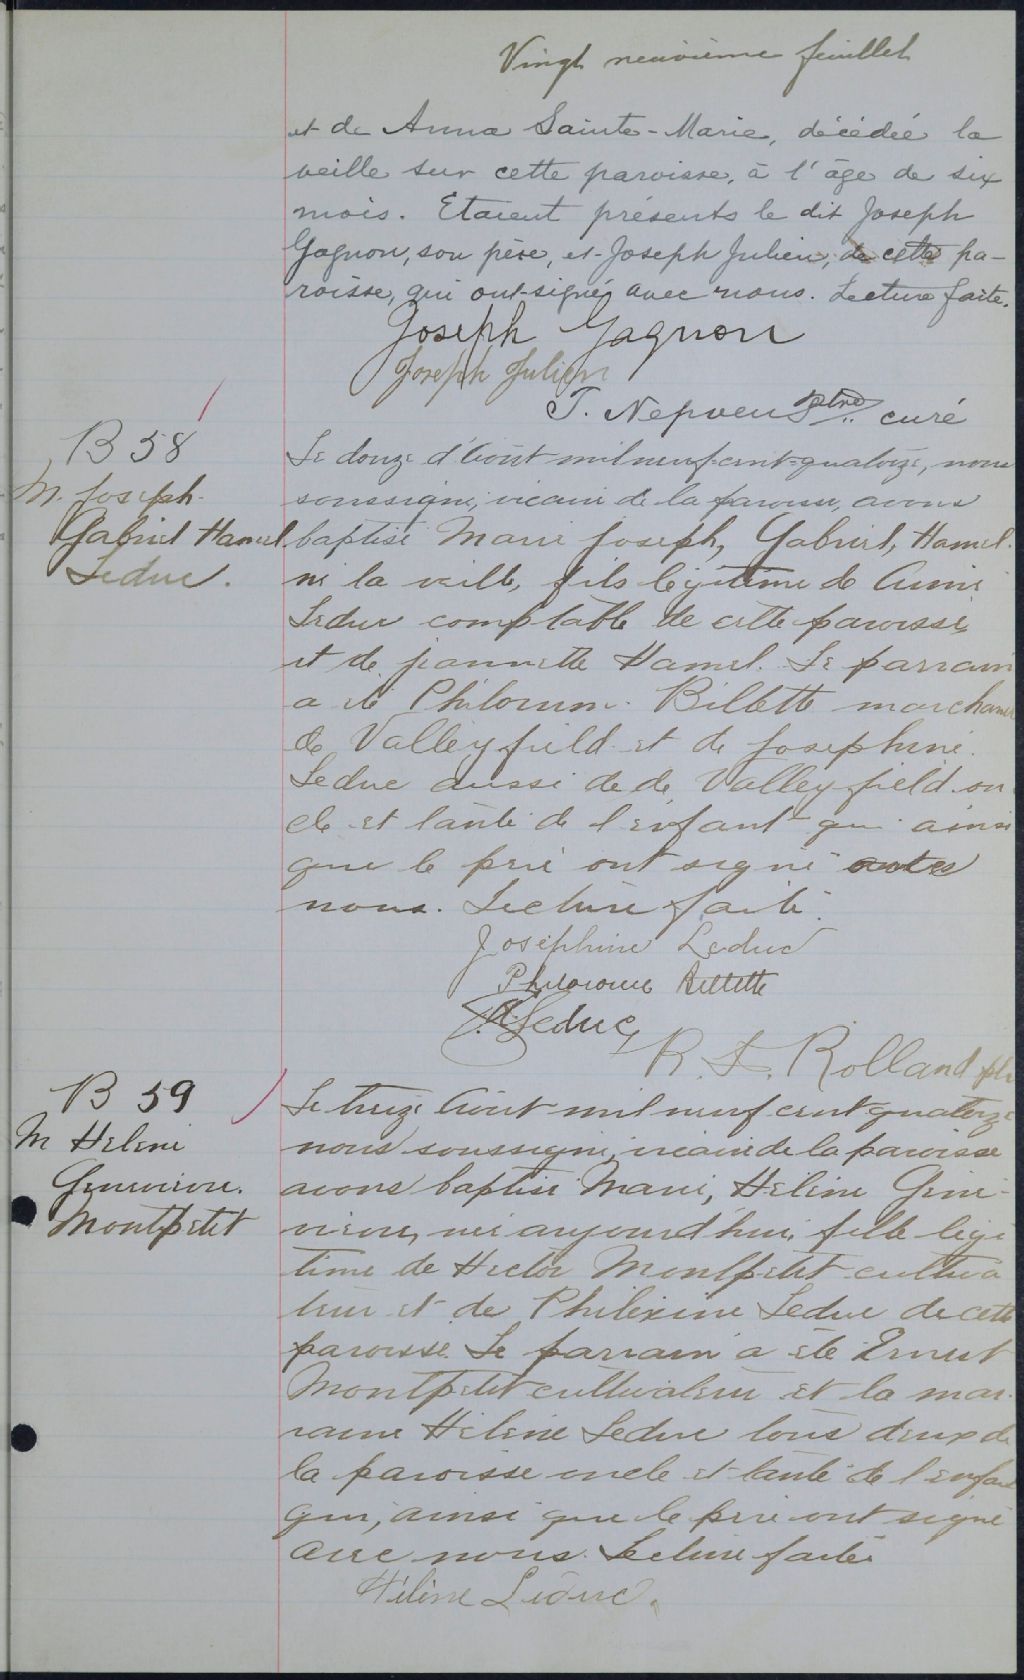 Vingt neuvième feuillet
et de Anna Sainte-Marie, décédée la
veille sur cette paroisse, à l'âge de six
mois. Etaient présents le dit Joseph
Gagnon, son père, et Joseph Julien, de cette pa-
roisse, qui ont signé avec nous. Lecture faite.
Joseph Gagnon
Joseph Julien
T. Nepveu ptre curé
B 58
M. Joseph
Gabriel Hamel
Leduc.
Le douze d'Août mil neuf cent quatorze, nous
soussigné, vicaire de la paroisse, avons
baptisé Marie Joseph, Gabriel, Hamel.
né la veille, fils légitime de Aimé
Leduc comptable de cette paroisse
et de jeannette Hamel. Le parrain
a été Philorum Billette marchand
de Valleyfield et de Josephine
Leduc aussi de de Valleyfield on
cle et tante de l'enfant qui ainsi
que le père ont signé
nous. Lecture faite.
Joséphine Leduc
Philorome Billette
A. Leduc
R. L. Rolland ptr
B 59
M Hélène
Geneviève.
Montpetit
Le treize Août mil neuf cent quatorze
nous soussigné, vicaire de la paroisse
avons baptisé Marie, Hélène Gene-
vieve, née aujourd'hui, fille légi
time de Hector Montpetit cultiva
teur et de Philexine Leduc de cette
paroisse. Le parrain a été Ernest
Montpetit cultivateur et la mar
raine Hélène Leduc tous deux de
la paroisse oncle et tante de l'enfant
qui, ainsi que le père ont signé
avec nous. Lecture faite
Hélène Leduc.